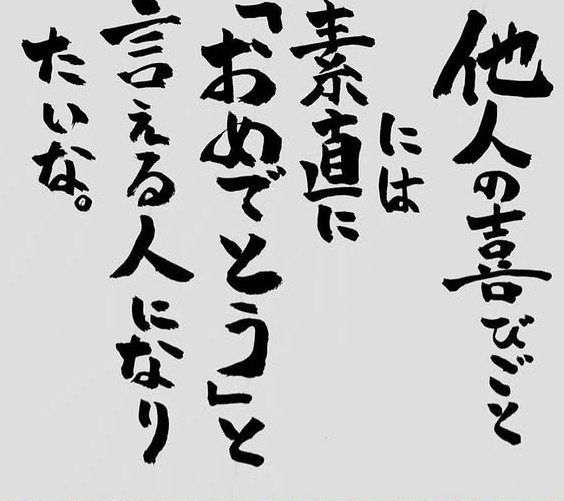 他人の喜びごと
には
素直に
「おめでとう」と
言える人になり
たいな。